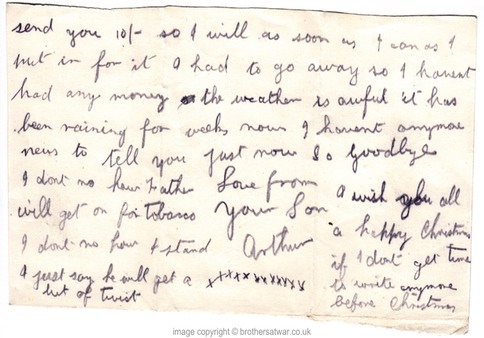 send you 10/- so I will as soon as I can as I
put in for it I had to go away so I havent
had any money the weather is awful it has
been raining for weeks now I havent anymore
news to tell you just now So Goodbye
Love from
Your Son
Arthur
xxxxxxxxxxxx
I dont no how Father
will get on for tobacco
I dont no how I stand
I just say he will get a
bit of twist
I wish you all
a happy Christmas
if I dont get time
to write anymore
before Christmas
image copyright © brothersatwar.co.uk